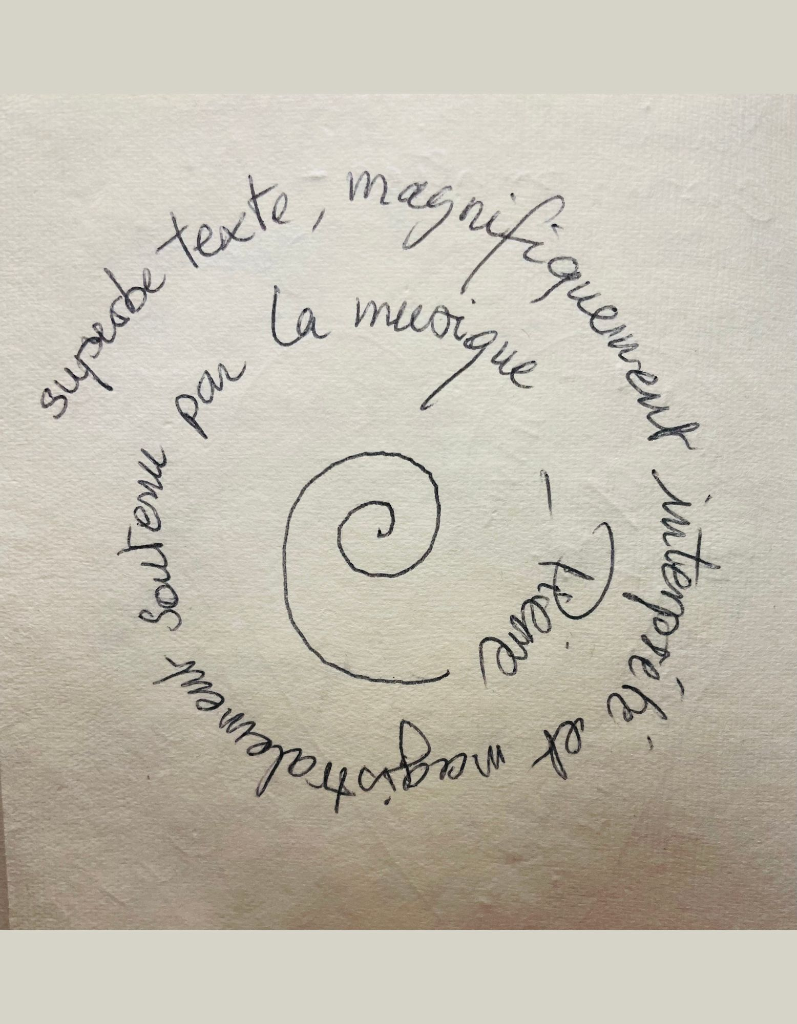 superbe texte, magnifiquement interprété et magistralement soutenu par la musique
– Pierre